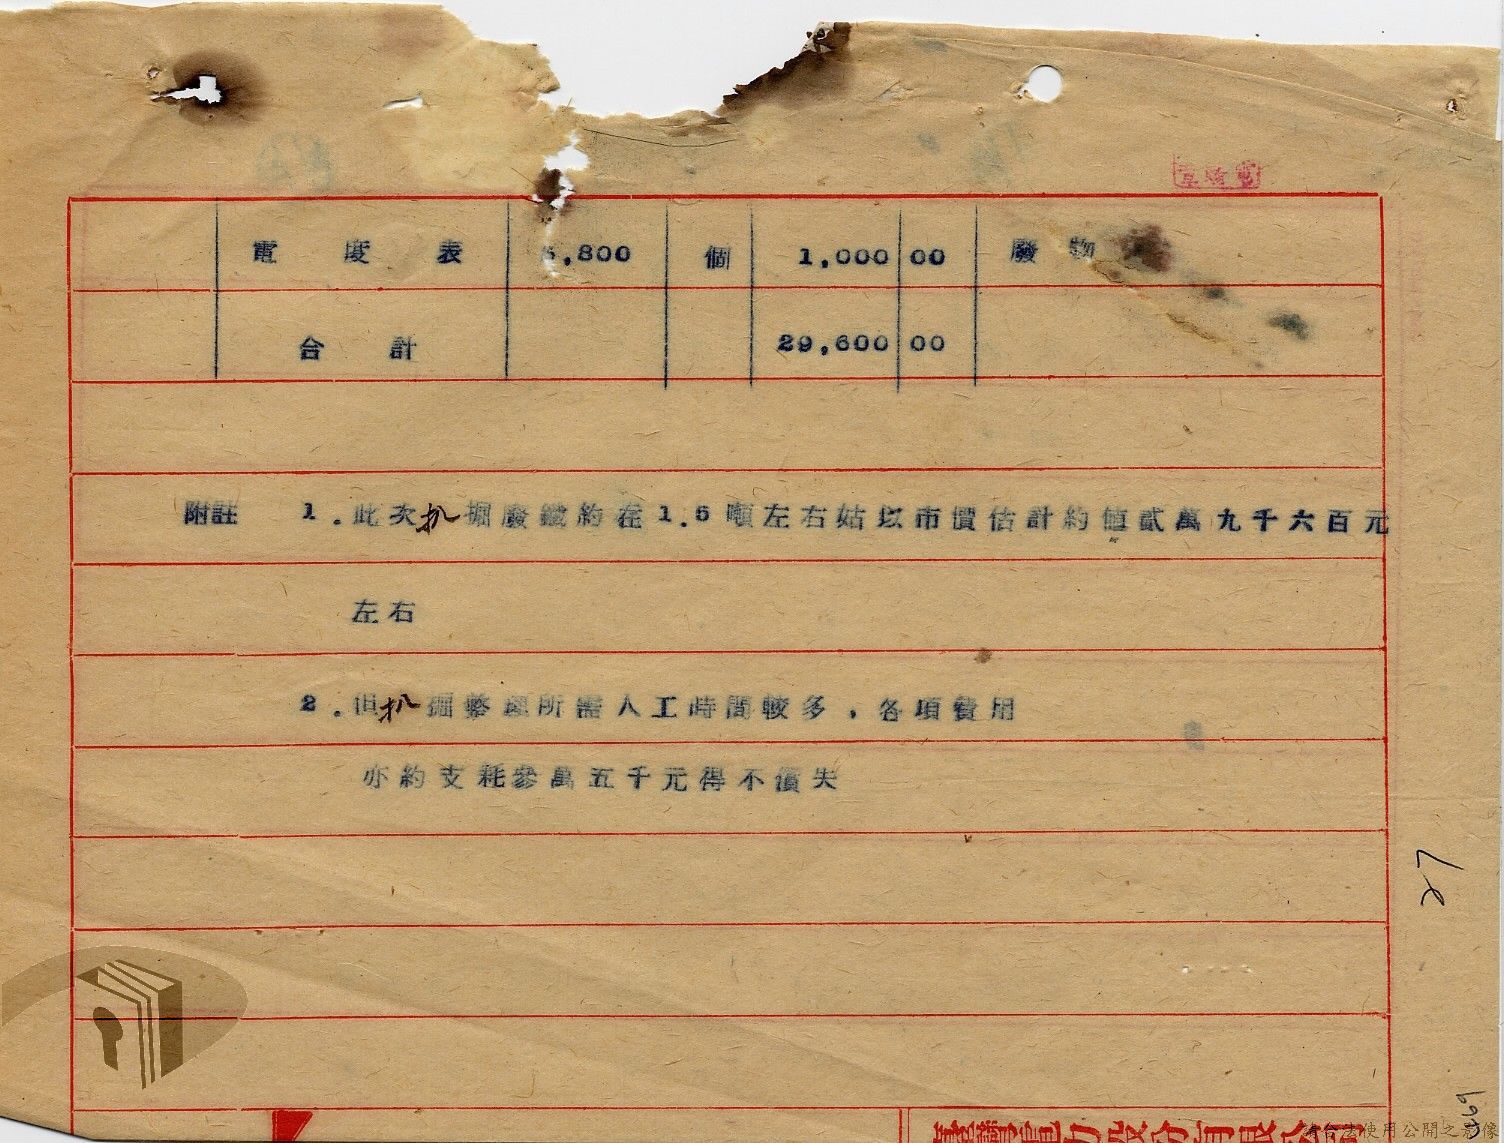 電度表 ,800 個 1,000 00 廢物
合計 29,600 00
附註 1.此次扒掘廢鐵約在1.6噸左右姑以市價估計約值貳萬九千六百元
左右
2.但扒掘整理所需人工時間較多,各項費用
亦約支耗參萬五千元得不償失
臺灣電力股份有限公
合法使用公開之影像